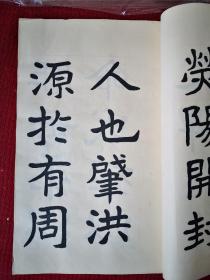 熒陽開封
人也肇洪
源於有周